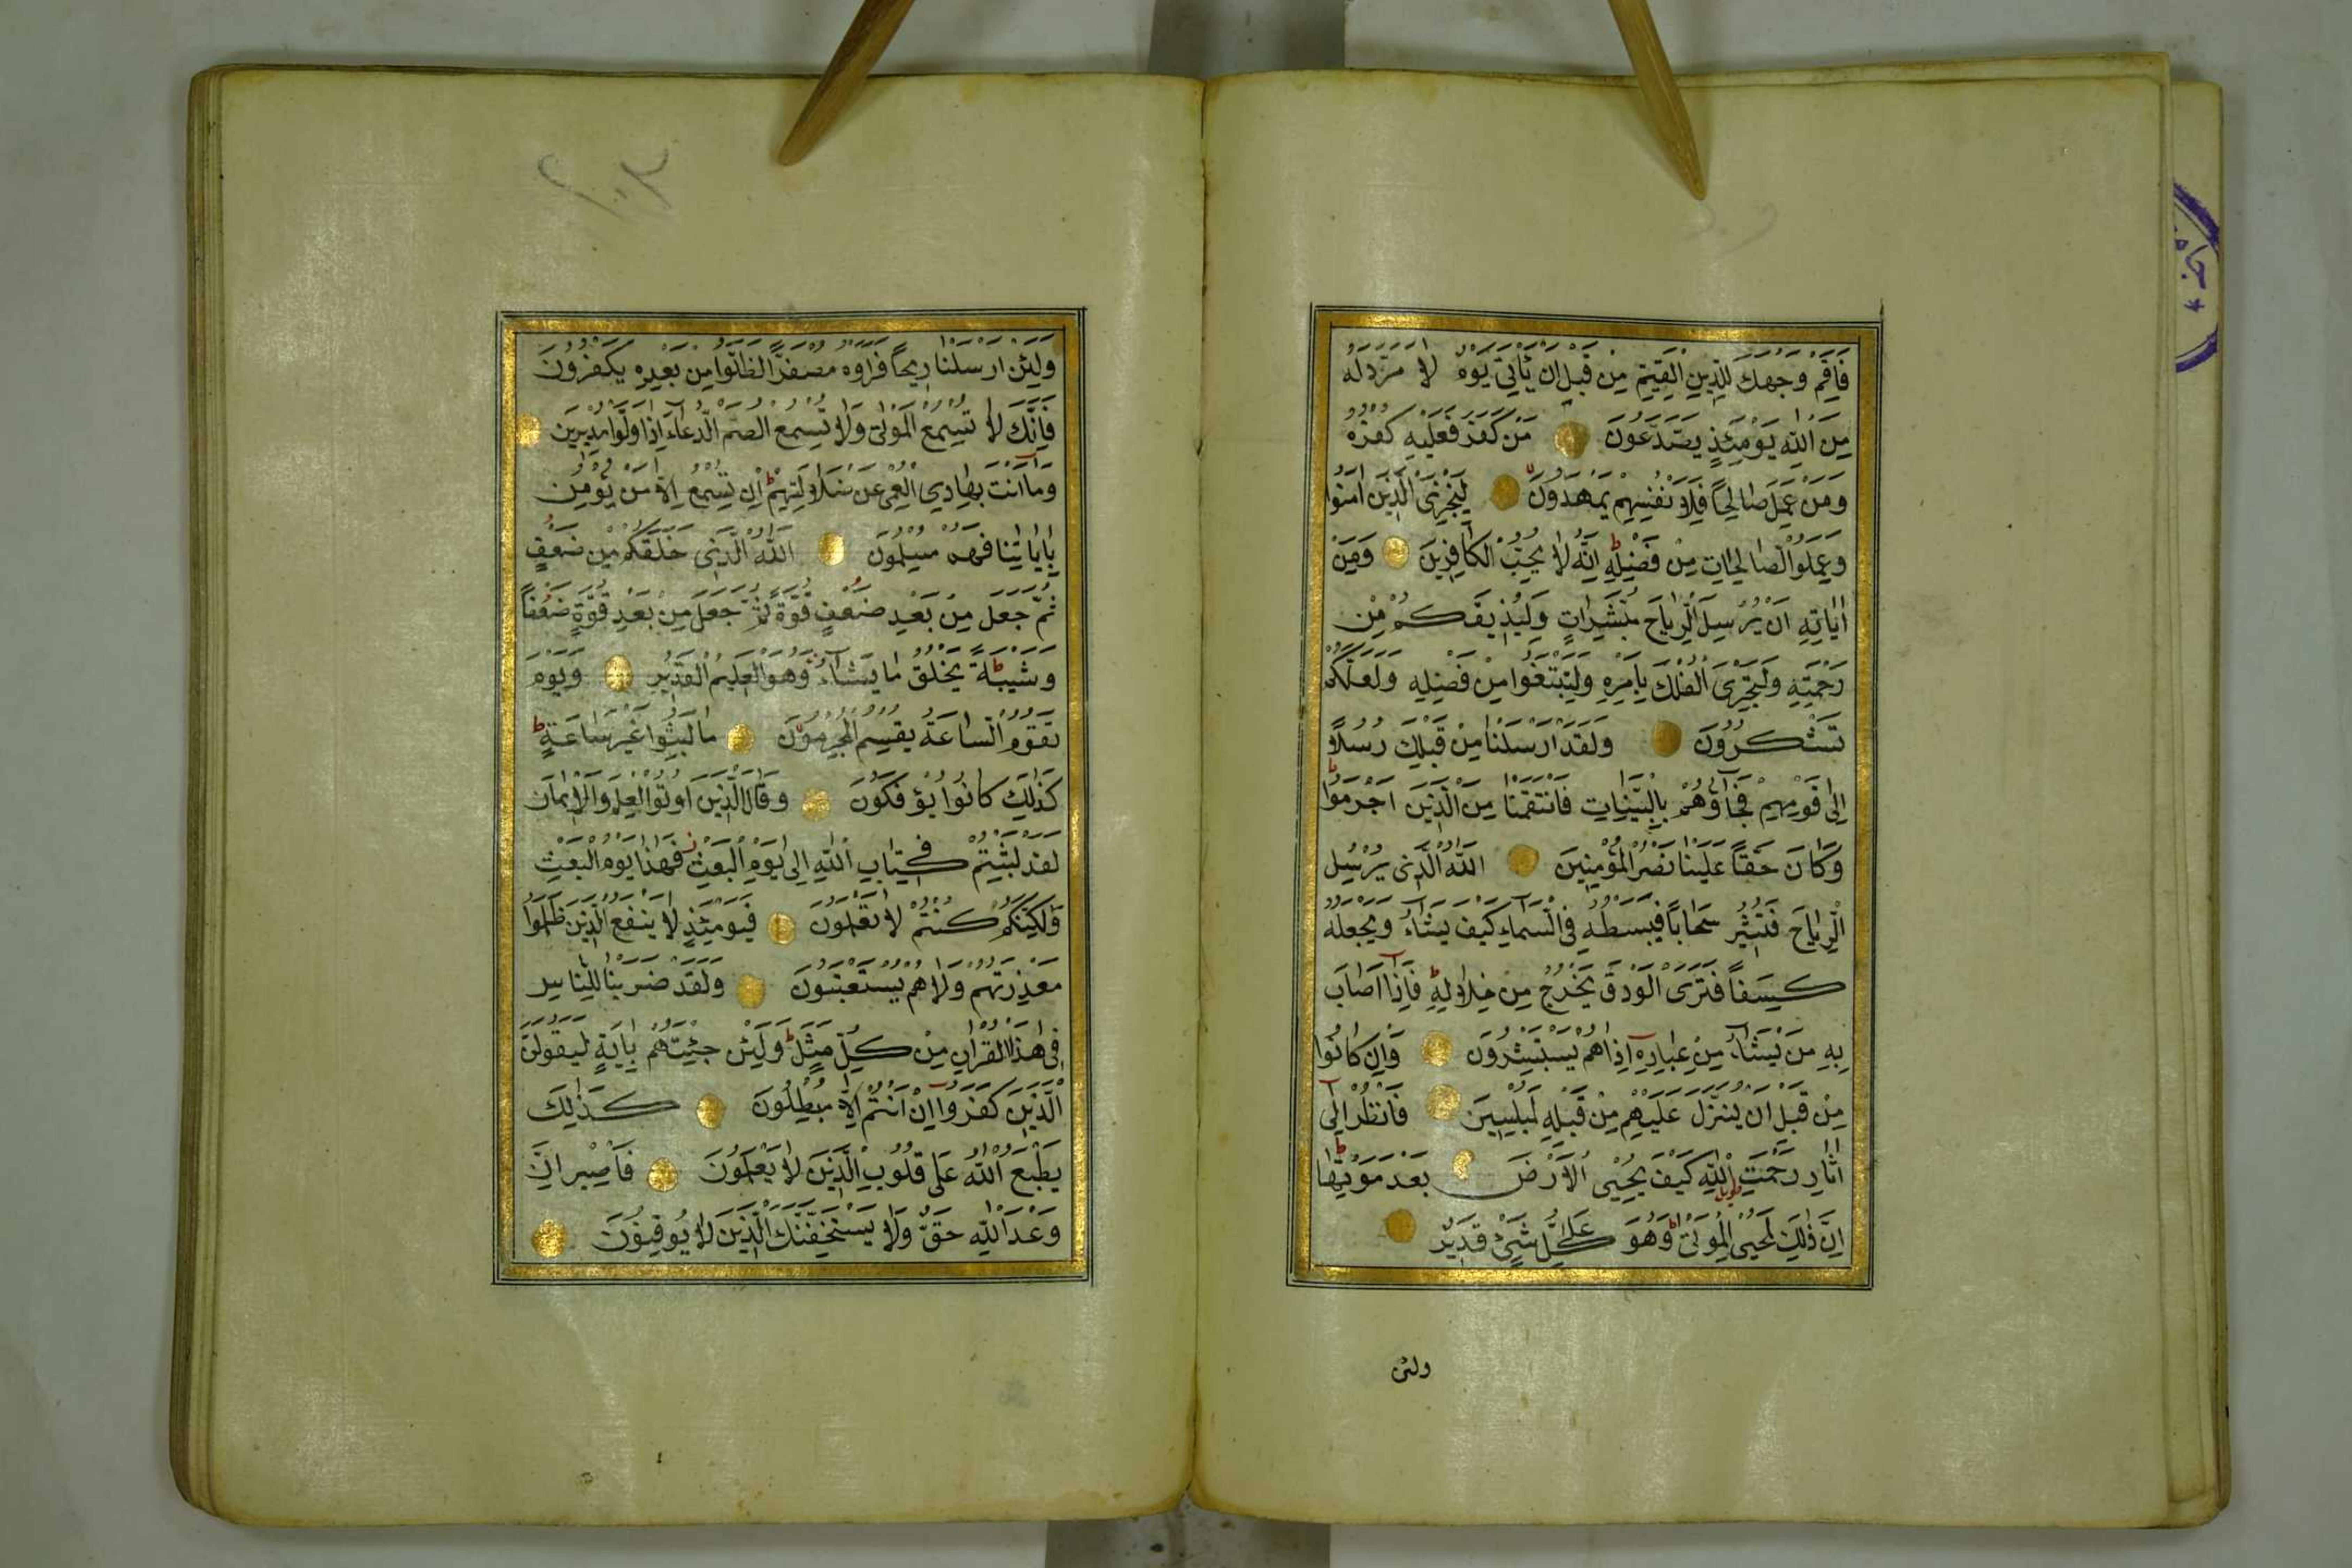 فَاَقِمْ وَجْهَكَ لِلدّٖينِ الْقَيِّمِ مِنْ قَبْلِ اَنْ يَاْتِيَ يَوْمٌ لَا مَرَدَّ لَهُ
مِنَ اللّٰهِ يَوْمَئِذٍ يَصَّدَّعُونَ مَنْ كَفَرَ فَعَلَيْهِ كُفْرُهُ
وَمَنْ عَمِلَ صَالِحًا فَلِاَنْفُسِهِمْ يَمْهَدُونَ لِيَجْزِيَ الَّذٖينَ اٰمَنُوا
وَعَمِلُوا الصَّالِحَاتِ مِنْ فَضْلِهٖ ط اِنَّهُ لَا يُحِبُّ الْكَافِرٖينَ وَمِنْ
اٰيَاتِهٖ اَنْ يُرْسِلَ الرِّيَاحَ مُبَشِّرَاتٍ وَلِيُذٖيقَكُمْ مِنْ
رَحْمَتِهٖ وَلِتَجْرِيَ الْفُلْكُ بِاَمْرِهٖ وَلِتَبْتَغُوا مِنْ فَضْلِهٖ وَلَعَلَّكُمْ
تَشْكُرُونَ وَلَقَدْ اَرْسَلْنَا مِنْ قَبْلِكَ رُسُلًا
اِلٰى قَوْمِهِمْ فَجَاؤُهُمْ بِالْبَيِّنَاتِ فَانْتَقَمْنَا مِنَ الَّذٖينَ اَجْرَمُوا ط
وَكَانَ حَقًّا عَلَيْنَا نَصْرُ الْمُؤْمِنٖينَ اَللّٰهُ الَّذٖي يُرْسِلُ
الرِّيَاحَ فَتُثٖيرُ سَحَابًا فَيَبْسُطُهُ فِي السَّمَاءِ كَيْفَ يَشَاءُ وَيَجْعَلُهُ
كِسَفًا فَتَرَى الْوَدْقَ يَخْرُجُ مِنْ خِلَالِهٖ ط فَاِذَا اَصَابَ
بِهٖ مَنْ يَشَاءُ مِنْ عِبَادِهٖ اِذَا هُمْ يَسْتَبْشِرُونَ وَاِنْ كَانُوا
مِنْ قَبْلِ اَنْ يُنَزَّلَ عَلَيْهِمْ مِنْ قَبْلِهٖ لَمُبْلِسٖينَ فَانْظُرْ اِلٰى
اٰثَارِ رَحْمَتِ اللّٰهِ كَيْفَ يُحْيِي الْاَرْضَ بَعْدَ مَوْتِهَا ط
اِنَّ ذٰلِكَ لَمُحْيِ الْمَوْتٰى ط وَهُوَ عَلٰى كُلِّ شَيْءٍ قَدٖيرٌ
ولئن
وَلَئِنْ اَرْسَلْنَا رٖيحًا فَرَاَوْهُ مُصْفَرًّا لَظَلُّوا مِنْ بَعْدِهٖ يَكْفُرُونَ
فَاِنَّكَ لَا تُسْمِعُ الْمَوْتٰى وَلَا تُسْمِعُ الصُّمَّ الدُّعَاءَ اِذَا وَلَّوْا مُدْبِرٖينَ
وَمَا اَنْتَ بِهَادِي الْعُمْيِ عَنْ ضَلَالَتِهِمْ ط اِنْ تُسْمِعُ اِلَّا مَنْ يُؤْمِنُ
بِاٰيَاتِنَا فَهُمْ مُسْلِمُونَ اَللّٰهُ الَّذٖي خَلَقَكُمْ مِنْ ضَعْفٍ
ثُمَّ جَعَلَ مِنْ بَعْدِ ضَعْفٍ قُوَّةً ثُمَّ جَعَلَ مِنْ بَعْدِ قُوَّةٍ ضَعْفًا
وَشَيْبَةً ط يَخْلُقُ مَا يَشَاءُ وَهُوَ الْعَلٖيمُ الْقَدٖيرُ وَيَوْمَ
تَقُومُ السَّاعَةُ يُقْسِمُ الْمُجْرِمُونَ مَا لَبِثُوا غَيْرَ سَاعَةٍ ط
كَذٰلِكَ كَانُوا يُؤْفَكُونَ وَقَالَ الَّذٖينَ اُوتُوا الْعِلْمَ وَالْاٖيمَانَ
لَقَدْ لَبِثْتُمْ فٖي كِتَابِ اللّٰهِ اِلٰى يَوْمِ الْبَعْثِ فَهٰذَا يَوْمُ الْبَعْثِ
وَلٰكِنَّكُمْ كُنْتُمْ لَا تَعْلَمُونَ فَيَوْمَئِذٍ لَا يَنْفَعُ الَّذٖينَ ظَلَمُوا
مَعْذِرَتُهُمْ وَلَا هُمْ يُسْتَعْتَبُونَ وَلَقَدْ ضَرَبْنَا لِلنَّاسِ
فٖي هٰذَا الْقُرْاٰنِ مِنْ كُلِّ مَثَلٍ ط وَلَئِنْ جِئْتَهُمْ بِاٰيَةٍ لَيَقُولَنَّ
الَّذٖينَ كَفَرُوا اِنْ اَنْتُمْ اِلَّا مُبْطِلُونَ كَذٰلِكَ
يَطْبَعُ اللّٰهُ عَلٰى قُلُوبِ الَّذٖينَ لَا يَعْلَمُونَ فَاصْبِرْ اِنَّ
وَعْدَ اللّٰهِ حَقٌّ وَلَا يَسْتَخِفَّنَّكَ الَّذٖينَ لَا يُوقِنُونَ